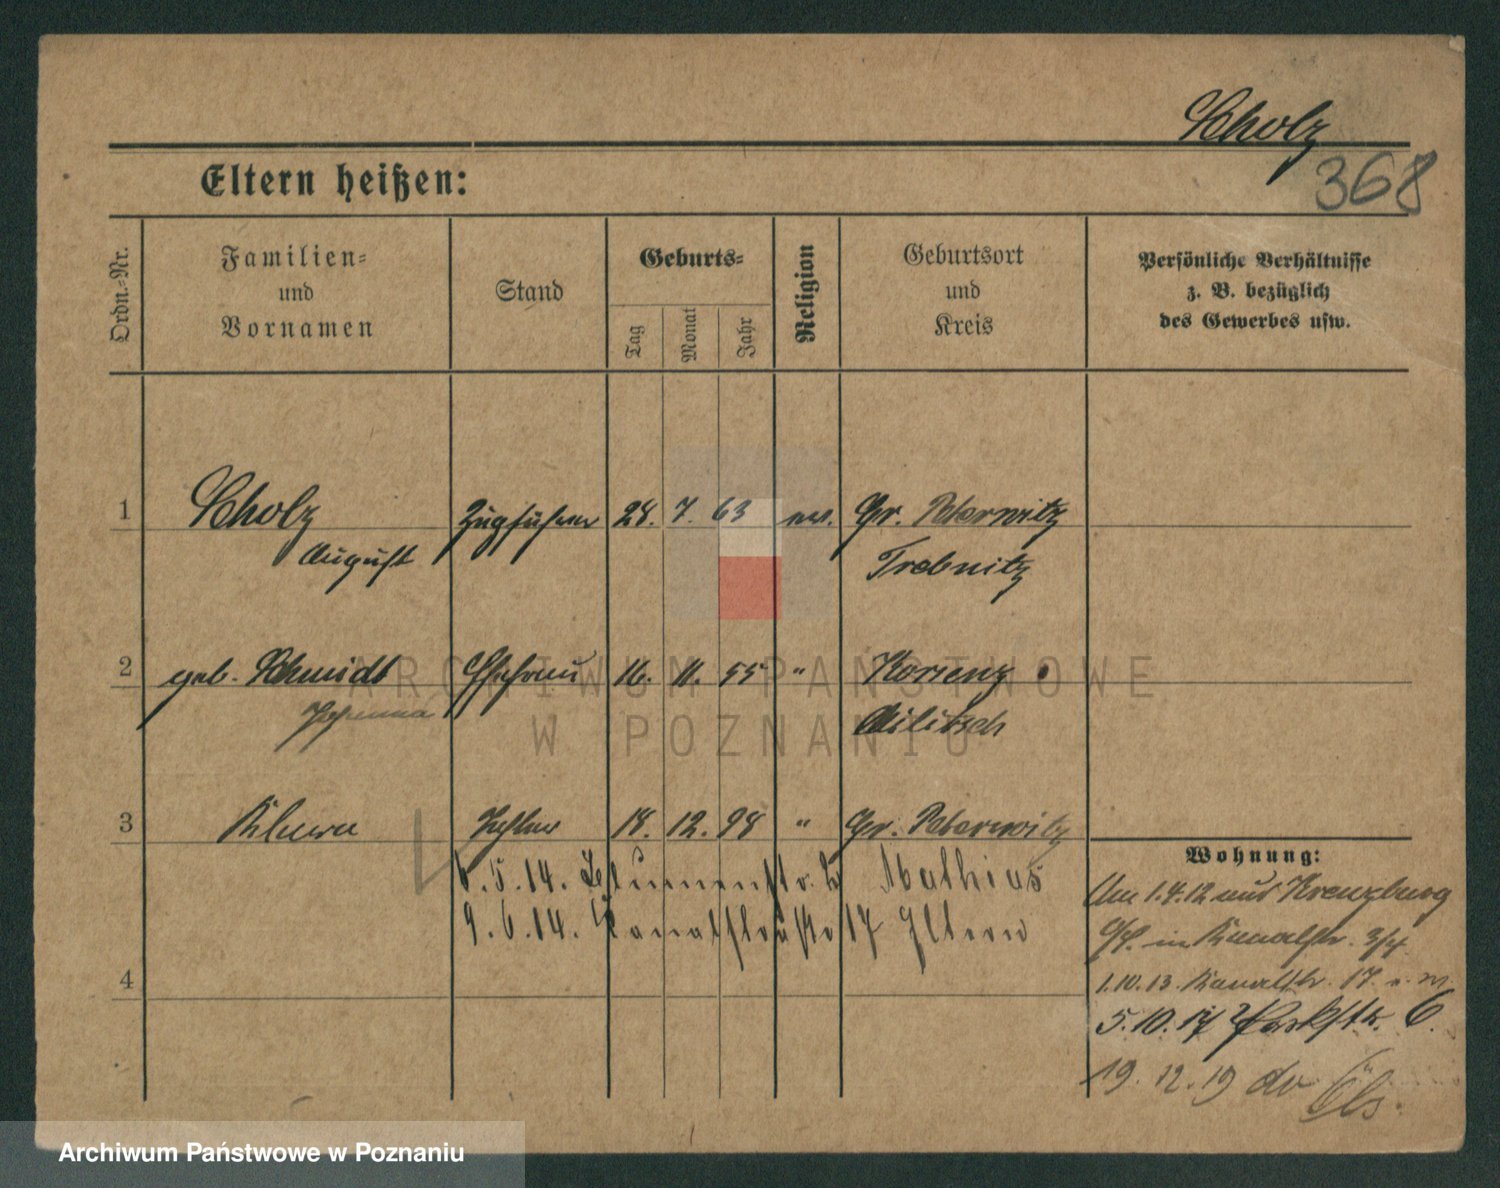 Scholz
368
Eltern heißen:
Ordn.-Nr.
Familien-
und
Vornamen
Stand
Geburts-
Tag
Monat
Jahr
Religion
Geburtsort
und
Kreis
Persönliche Verhältnisse
z. B. bezüglich
des Gewerbes usw.
1 Scholz Zugführer 28. 7. 63 ev. Gr. Peterwitz
August Trebnitz
2 geb. Schmidt Ehefrau 16. 11. 55 " Korsenz
Johanna Militsch
3 18. 12. 98 " Gr. Peterwitz
Wohnung:
6.5.14. Blumenstr. 2 Mathias
Am 1.4.12 aus Kreuzburg
9.6.14. 17 Eltern
in Kanalstr. 3/4.
4
1.10.13. Kanalstr. 17
5.10.17 Parkstr. 6.
19.12.19 Öls.
ARCHIWUM PAŃSTWOWE
W POZNANIU
Archiwum Państwowe w Poznaniu